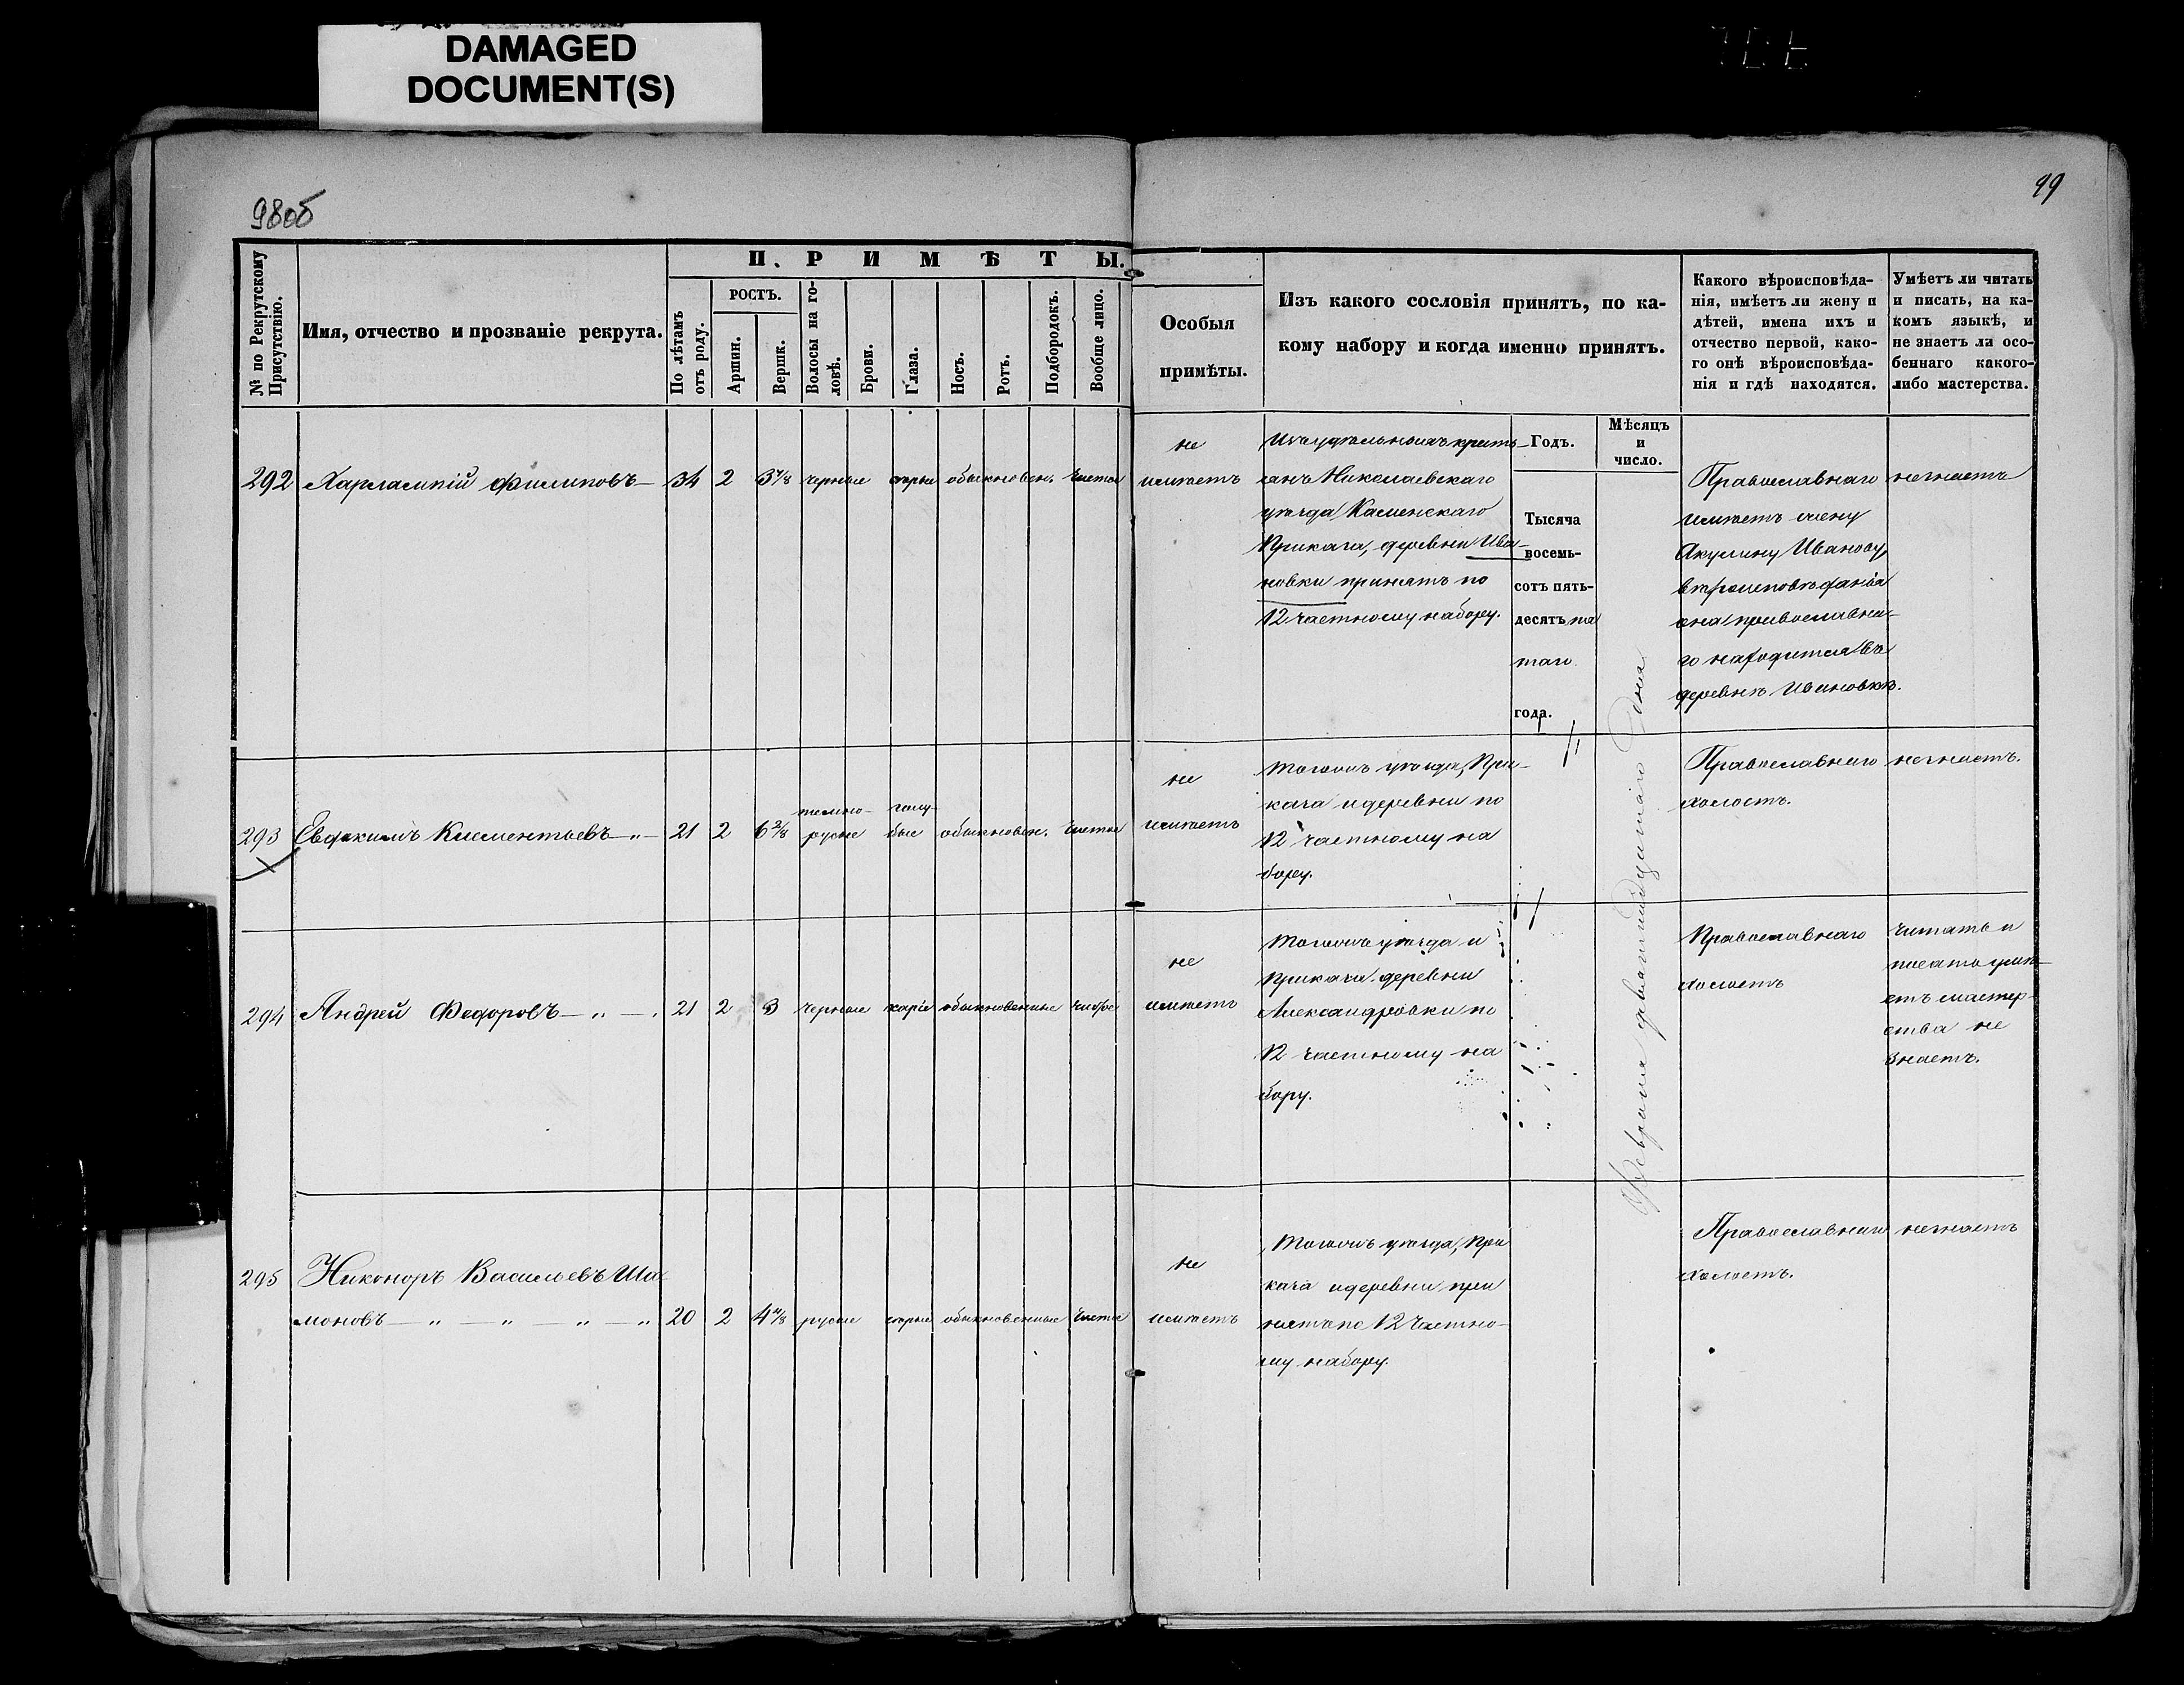 DAMAGED
DOCUMENT(S)
98об
99
№ по Рекрутскому
Присутствію.
Имя, отчество и прозваніе рекрута.
ПРИМѢТЫ.
По лѣтамъ
отъ роду.
РОСТЪ.
Аршин.
Вершк.
Волосы на го-
ловѣ.
Брови.
Глаза.
Носъ.
Ротъ.
Подбородокъ.
Вообще лицо.
Особыя
примѣты.
Изъ какого сословія принятъ, по ка-
кому набору и когда именно принятъ.
Какого вѣроисповѣда-
нія, имѣетъ ли жену и
дѣтей, имена ихъ и
отчество первой, како-
го онѣ вѣроисповѣда-
нія и гдѣ находятся.
Умѣетъ ли читать
и писать, на ка-
комъ языкѣ, и
не знаетъ ли осо-
беннаго какого-
либо мастерства.
Годъ.
Мѣсяцъ
и
число.
Тысяча
восемь-
сотъ пять-
десятъ пя
таго
года.
Февраля девятнадцатаго дня
292 Харлампій Филиповъ 34 2 3 7/8 черные сѣрые обыкновен. чистое
не
имѣетъ
Изъ удѣльныхъ крестья-
анъ Николаевскаго
уѣзда Каменскаго
Приказа, деревни Ива-
новки принятъ по
12 частному набору.
Православнаго
имѣетъ жену
Акулину Иванову,
вѣроисповѣданія
она православна-
го находится въ
деревнѣ Ивановкѣ.
незнаетъ
293 Евдокимъ Клементьевъ — „ — 21 2 6 2/8 темно-
русые голу-
бые обыкновен. чистое
не
имѣетъ
Тогожъ уѣзда, При-
каза и деревни по
12 частному на
бору.
Православнаго
холостъ.
незнаетъ.
294 Андрей Федоровъ — „ — 21 2 3 черные карие обыкновенные
не
имѣетъ
Тогожъ уѣзда и
Приказа деревни
Александровки по
12 частному на
бору.
Православнаго
холостъ
читать и
писать умѣ-
етъ мастер-
ства не
знаетъ.
295 Никоноръ Васильевъ Ша
моновъ — „ — „ — „ — „ 20 2 4 4/8 русые сѣрые обыкновенные чистое
не
имѣетъ
Тогожъ уѣзда, При
каза и деревни при
нятъ по 12 частно-
му набору.
Православнаго
холостъ.
незнаетъ